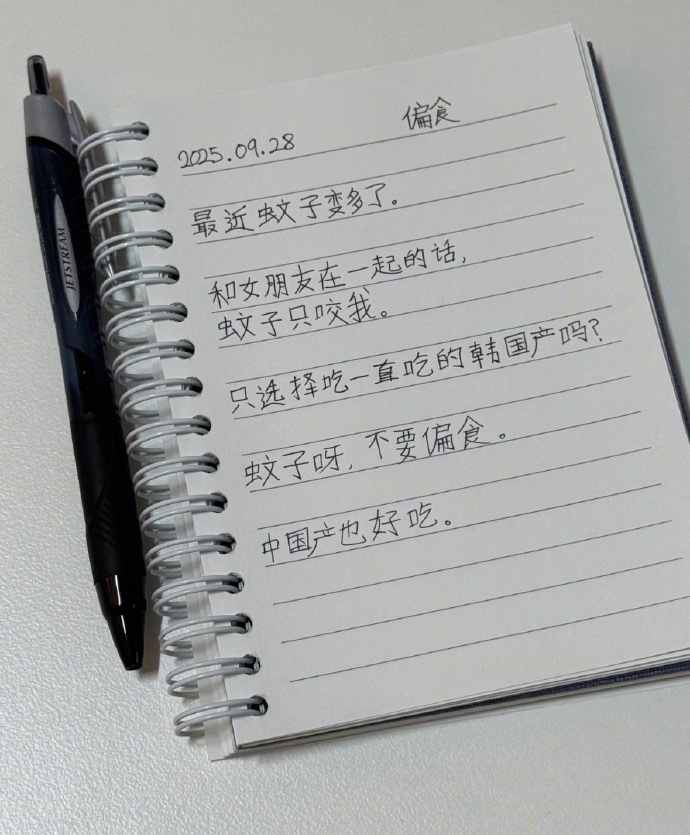 2025.09.28 偏食
最近蚊子变多了。
和女朋友在一起的话,
蚊子只咬我。
只选择吃一直吃的韩国产吗?
蚊子呀,不要偏食。
中国产也好吃。
JETSTREAM